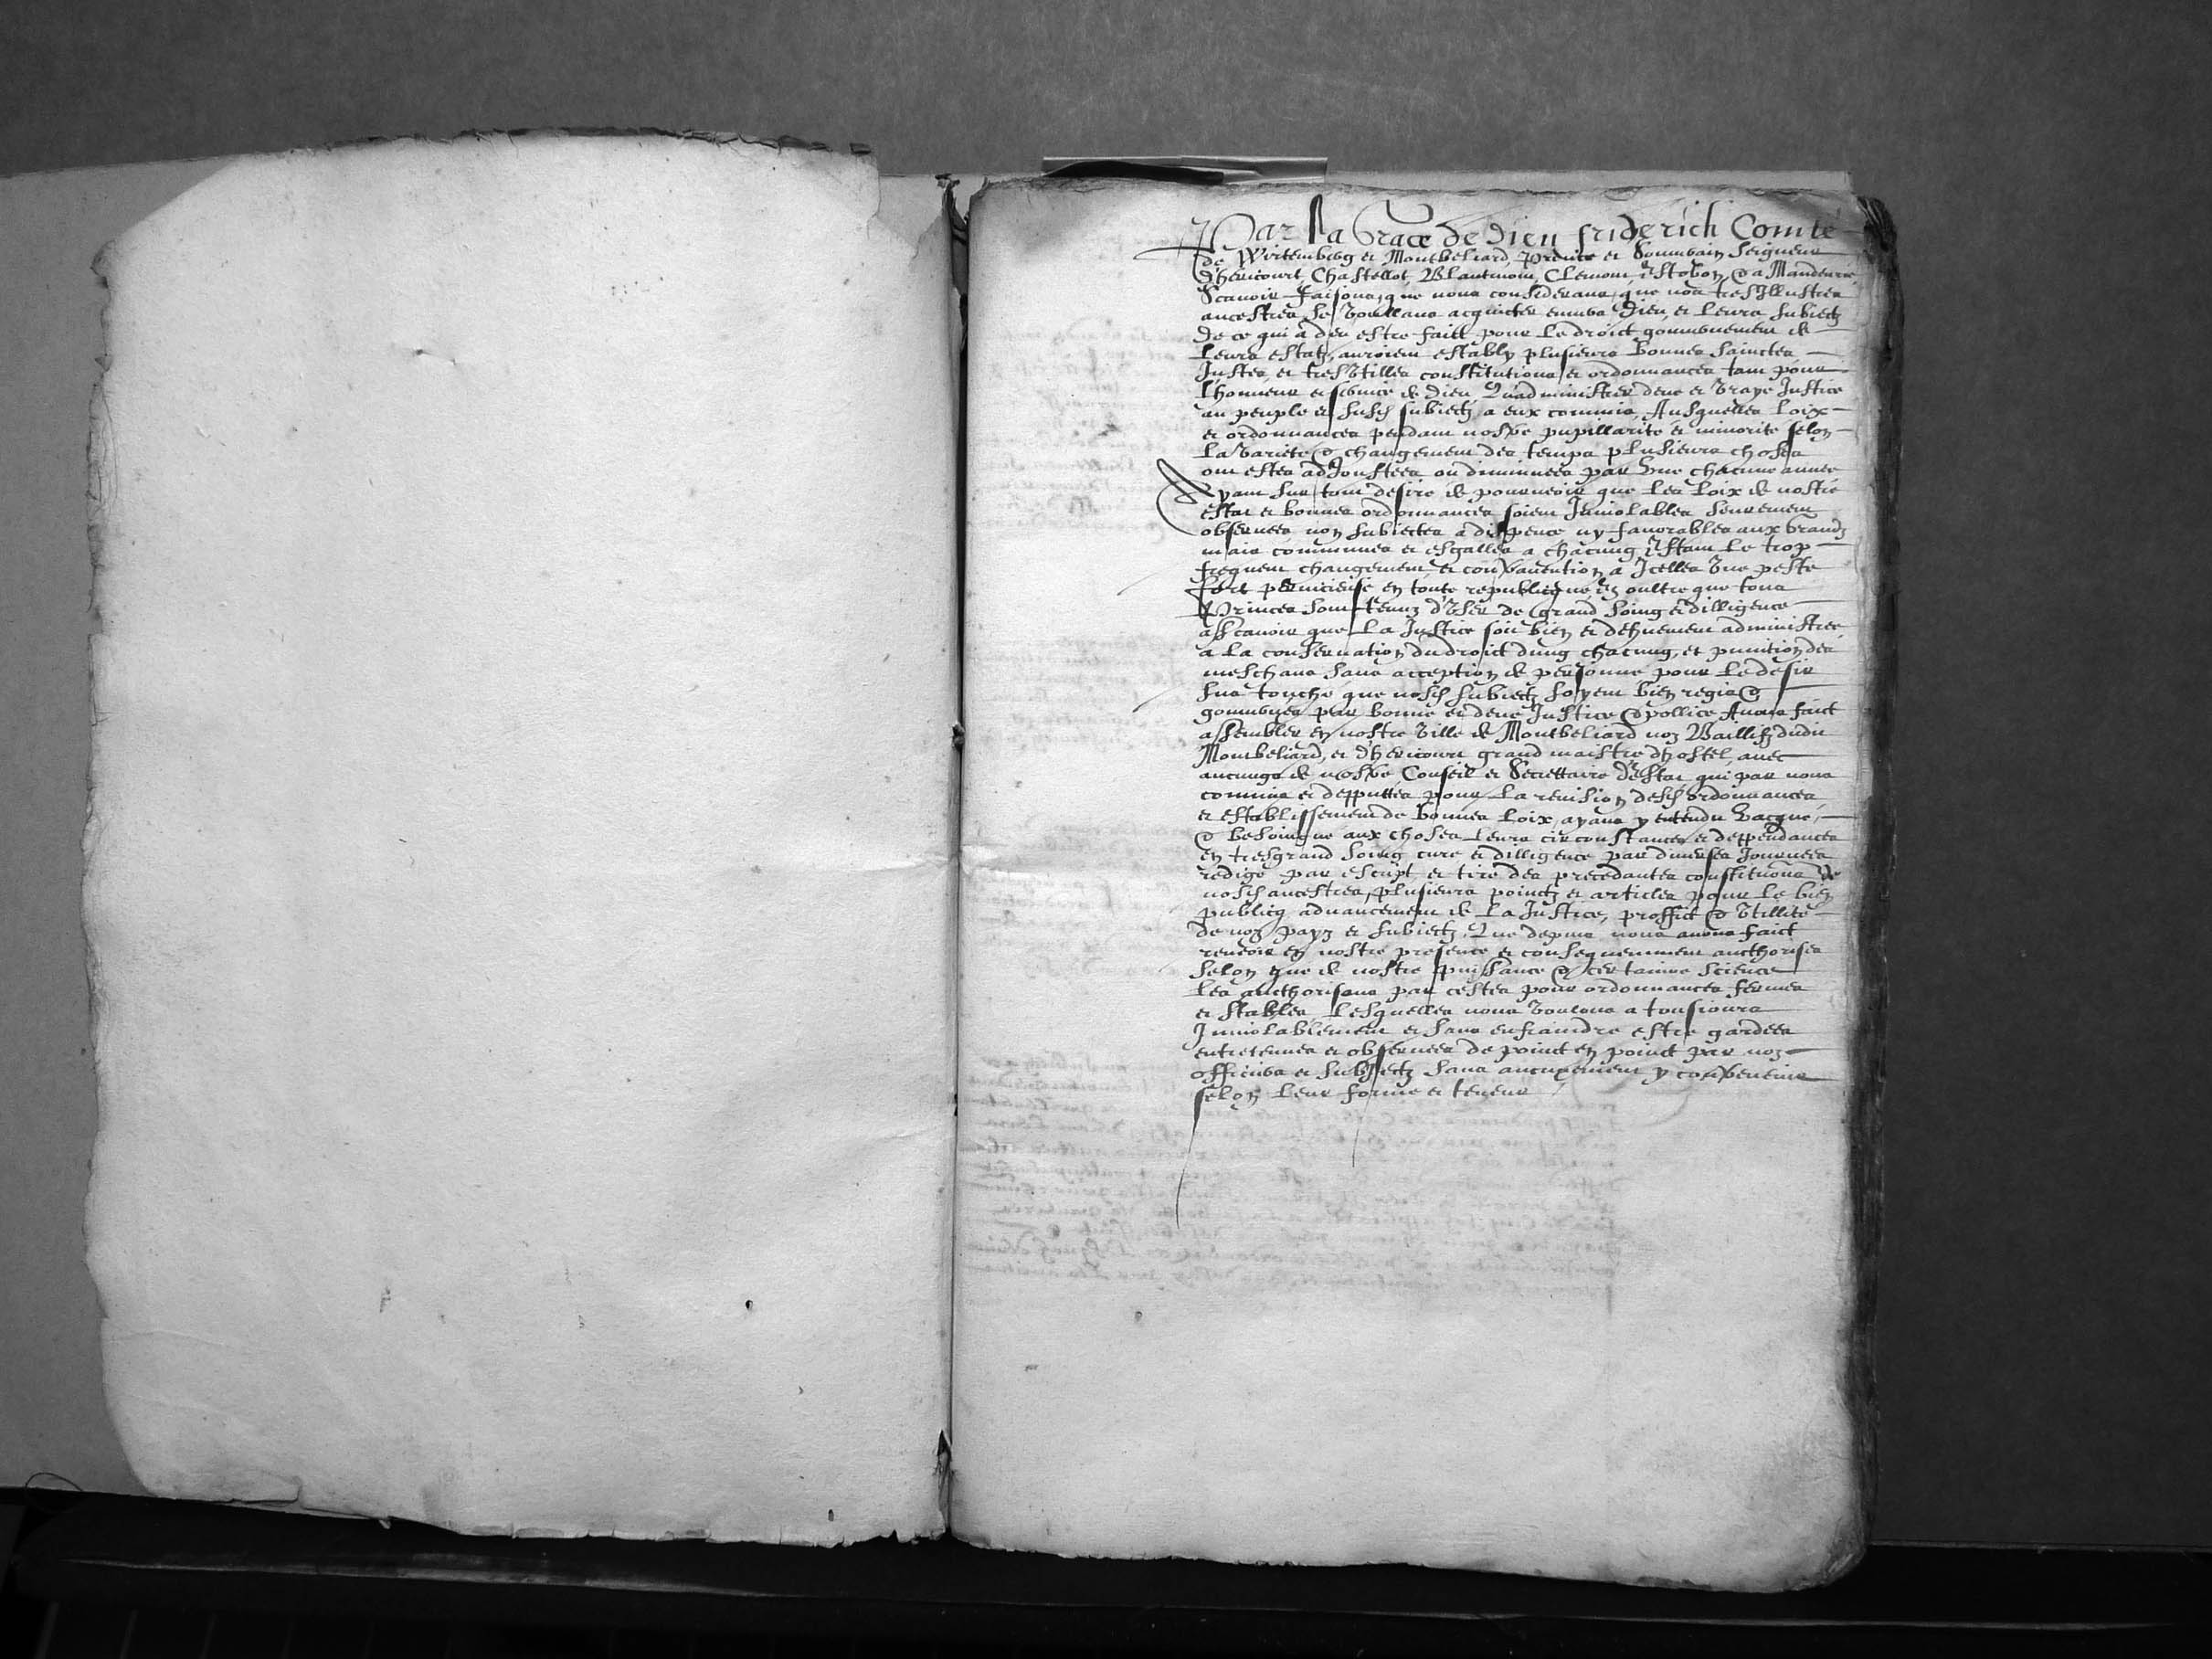 Par la Grace de Dieu friderich Comte
de Wirtemberg et Montbeliard, Prince et Souuerain Seigneur
d'hericourt, Chastellot, Blantmont, Clemont, Estobon & a Mandeure
Scauoir faisons, que nous considerans, que noz tresIllustres
ancestres se voullans acquicter enuers Dieu, et leurs subiectz
de ce qui a deu estre faict pour le droict gouuernement de
leurs estatz, auroient estably plusieurs bonnes sainctes
Justes et tresVtilles constitutions et ordonnances tant pour
lhonneur et seruice de Dieu, Qu'administrer deue et vraye Justice
au peuple et susd subiectz a eux commis, Ausquelles loix
et ordonnances pendant nostre pupillarite et minorite selon
la variete & changement des temps plusieurs choses
ont estes adJoustees ou diminuees par vne chacune annee
Ayant sur tout desire de pourueoir que les loix de nostre
estat et bonnes ordonnances soient Inuiolables seurement
obseruees non subiectes a dispence ny fauorables aux Grandz
mais communes et esgalles a chacung Estant le trop
frequent changement et contrauention a Jcelles vne peste
fort pernicieuse en toute republicque, Et oultre que tous
Princes sont tenuz d'vser de grand soing et dilligence
assçauoir que la Justice soit bien et dehuement administree
a la conseruation du droict dung chacung, et punition des
meschans sans acception de personne pour le desir
sus touche que nosd subiectz soyent bien regis &
gouuernes par bonne et deue Justice & pollice Auons faict
assembler en nostre ville de Montbeliard noz Baillifz dudit
Montbeliard, et d'hericourt grand maistre dhostel, auec
aucungs de nostre Conseil et Secrettaire d'Estat qui par nous
commis et depputtes pour la reuision desd ordonnances
et establissement de bonnes loix, ayans y entendu vacque,
& besoingne aux choses leurs circonstances et deppendances
en tresgrand soing cure et dilligence par diuerses Journees
redige par escript et tire des precedantes constitutions de
nosd ancestres, plusieurs poinctz et articles pour le bien
publicq aduancement de la Justice, proffict & vtillite
de noz pays et subiectz, Que depuis nous auons faict
reueoir en nostre presence et consequemment aucthorises
selon que de nostre puissance & certaine science
les aucthorisons par cestes pour ordonnances fermes
et stables, lesquelles nous voulons a tousiours
Inuiolablement et sans enfraindre estre gardees
entretenues et obseruees de poinct en poinct par noz
officiers et subiectz sans aucunement y contreuenir
selon leur forme et teneur